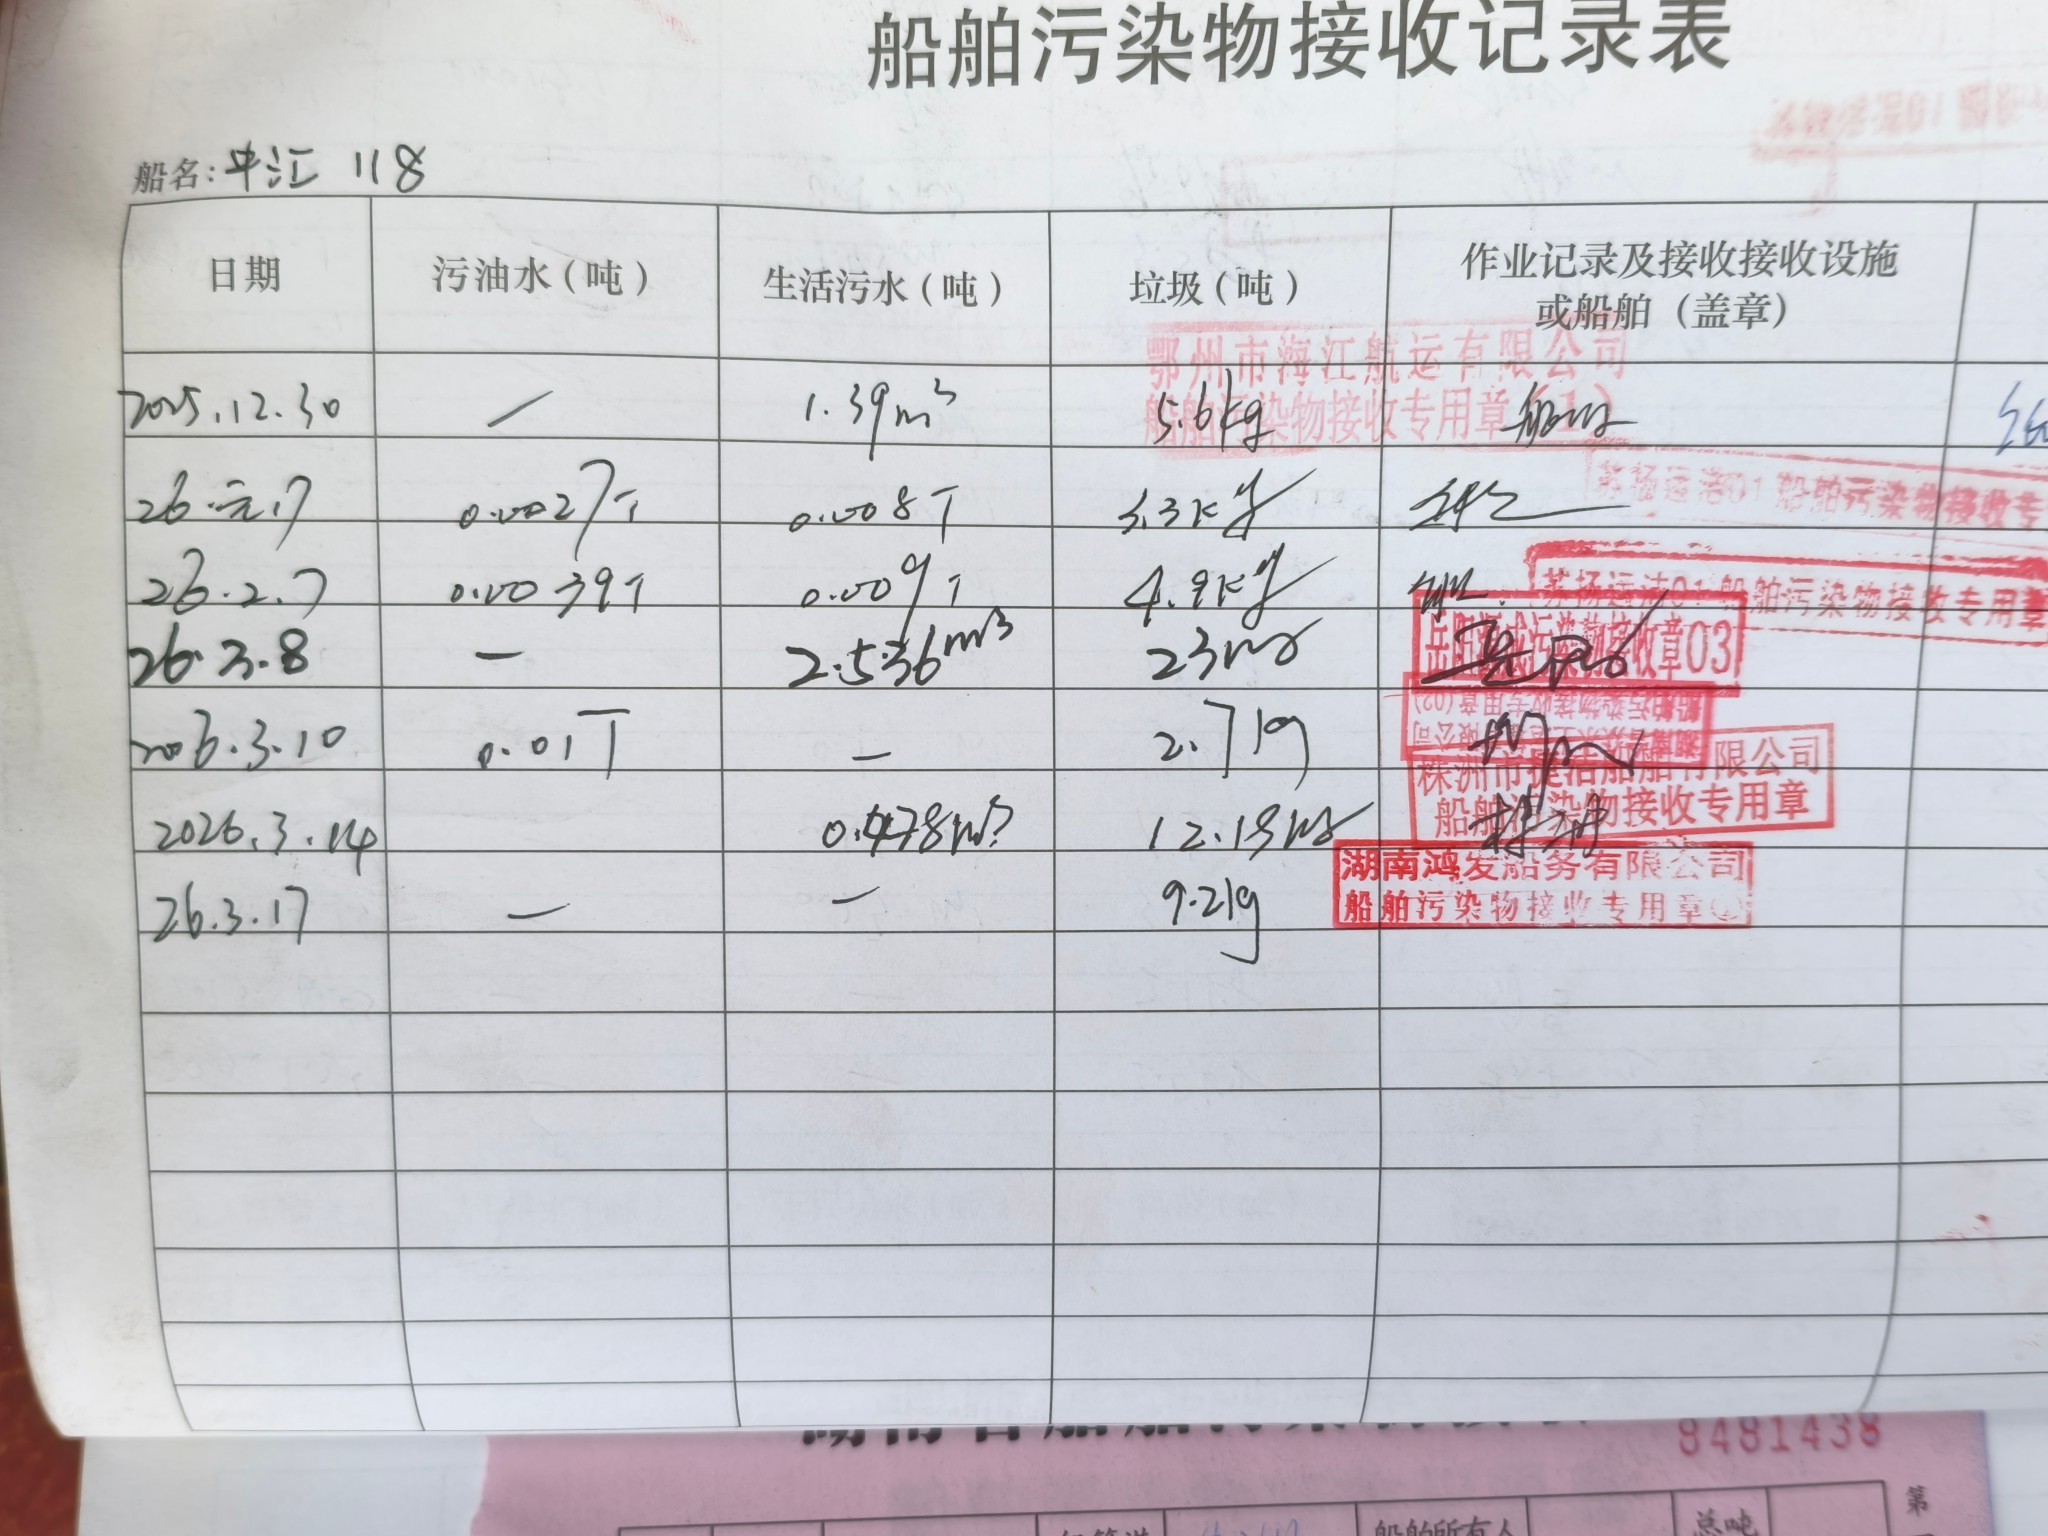 船舶污染物接收记录表
船名：中江 118
日期 污油水（吨） 生活污水（吨） 垃圾（吨） 作业记录及接收接收设施
或船舶（盖章）
鄂州市海江航运有限公司
船舶污染物接收专用章
2025.12.30 — 1.39m³ 5.6kg
苏扬运洁01 船舶污染物接收专
26.元.7 0.0027T 0.008T 3.3kg
苏扬运洁01 船舶污染物接收专用章
26.2.7 0.0039T 0.009T 4.9kg
26.3.8 — 2.536m³ 23kg
岳阳 污染物接收章03
2026.3.10 0.01T — 2.71g
株洲市捷洁船舶有限公司
船舶污染物接收专用章
2026.3.14 0.478m³ 12.19kg 株洲
湖南鸿发船务有限公司
船舶污染物接收专用章
26.3.17 — — 9.21g
8481438
船舶所有人 总吨
第